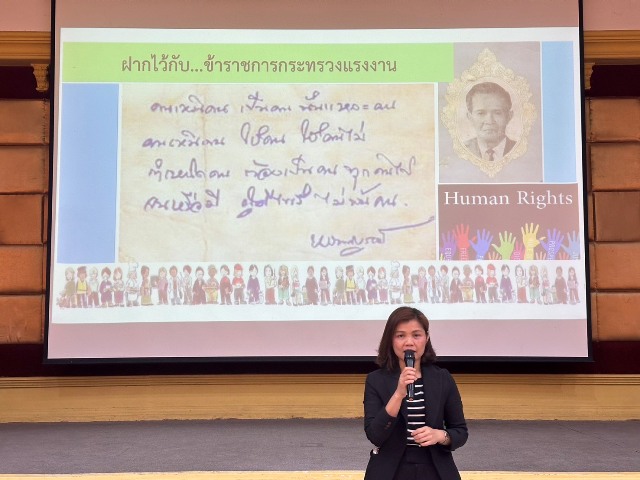 ฝากไว้กับ...ข้าราชการกระทรวงแรงงาน
คนเห็นคน เป็นคน นั่นแหละคน
คนเห็นคน ใช่คน ใช่คนไม่
กำเนิดคน ต้องเป็นคน ทุกคนไป
จนหรือมี ผู้ดีไพร่ ไม่พ้นคน.
Human Rights